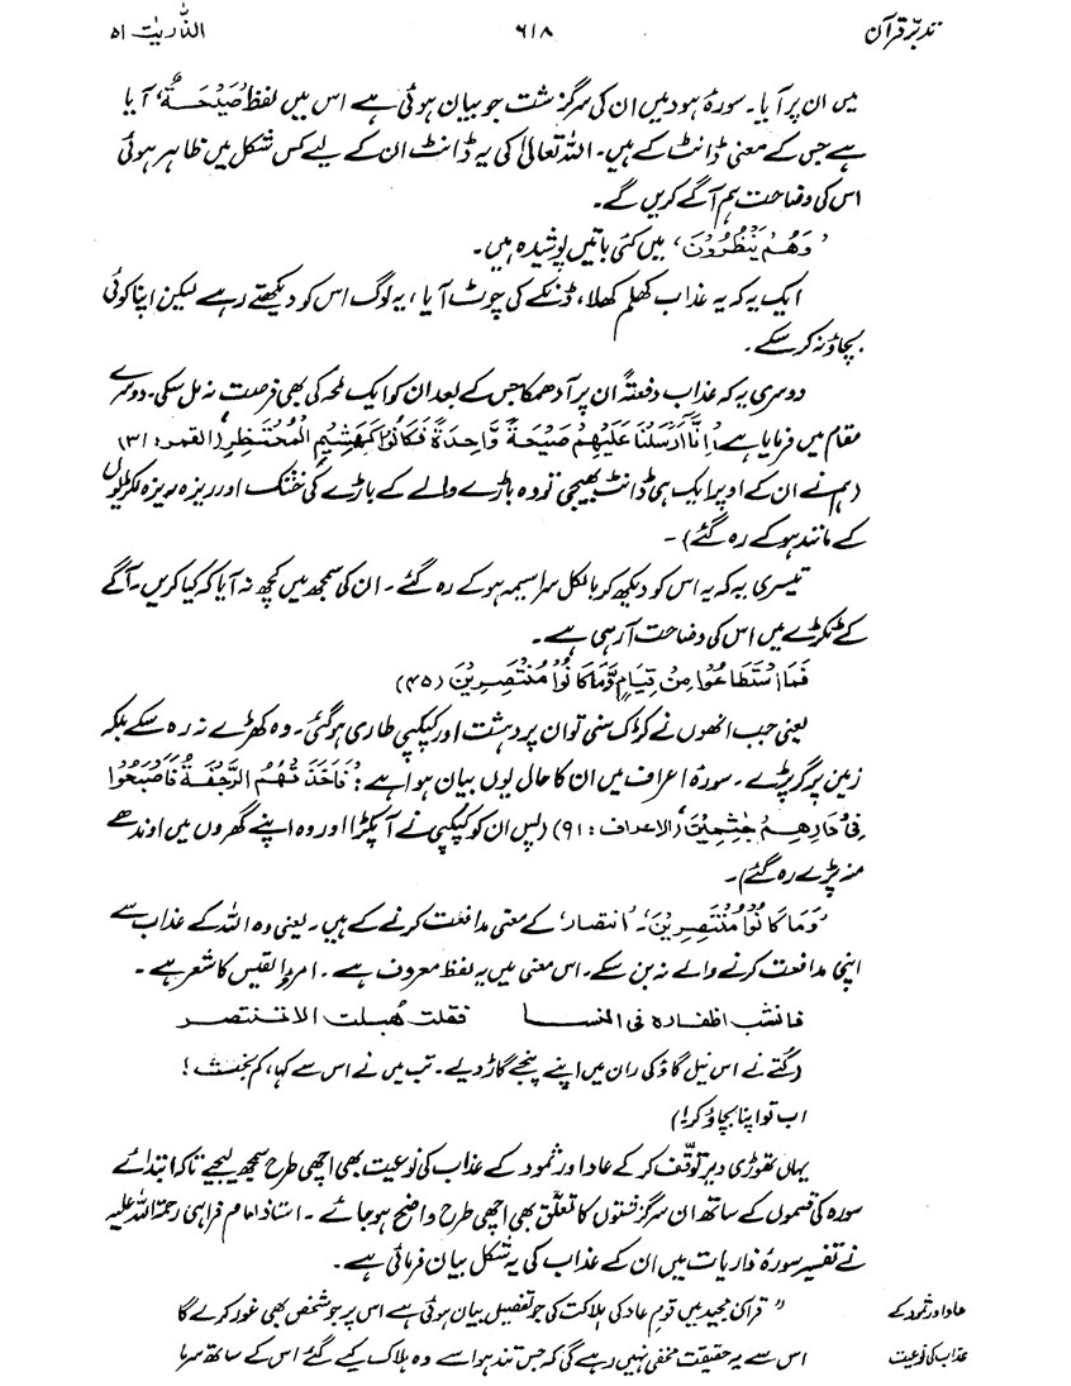 تدبّرِ قرآن ۶۱۸ الذّٰریٰت ۵۱
میں ان پر آیا۔ سورۂ ہود میں ان کی سرگزشت جو بیان ہوئی ہے اس میں لفظ ’صَیْحَۃٌ‘ آیا
ہے جس کے معنی ڈانٹ کے ہیں۔ اللہ تعالیٰ کی یہ ڈانٹ ان کے لیے کس شکل میں ظاہر ہوئی
اس کی وضاحت ہم آگے کریں گے۔
’وَھُمْ یَنْظُرُوْنَ‘ میں کئی باتیں پوشیدہ ہیں۔
ایک یہ کہ یہ عذاب کھلم کھلا، ڈنکے کی چوٹ آیا، یہ لوگ اس کو دیکھتے رہے لیکن اپنا کوئی
بچاؤ نہ کر سکے۔
دوسری یہ کہ عذاب دفعتہً ان پر آ دھمکا جس کے بعد ان کو ایک لمحہ کی بھی فرصت نہ مل سکی۔ دوسرے
مقام میں فرمایا ہے: ’اِنَّآ اَرْسَلْنَا عَلَیْھِمْ صَیْحَۃً وَّاحِدَۃً فَکَانُوْا کَھَشِیْمِ الْمُحْتَظِرِ‘ (القمر: ۳۱)
(ہم نے ان کے اوپر ایک ہی ڈانٹ بھیجی تو وہ باڑے والے کے باڑے کی خشک اور ریزہ ریزہ لکڑیوں
کے مانند ہو کے رہ گئے)۔
تیسری یہ کہ یہ اس کو دیکھ کر بالکل سراسیمہ ہو کے رہ گئے۔ ان کی سمجھ میں کچھ نہ آیا کہ کیا کریں۔ آگے
کے ٹکڑے میں اس کی وضاحت آ رہی ہے۔
فَمَا اسْتَطَاعُوْا مِنْ قِیَامٍ وَّمَا کَانُوْا مُنْتَصِرِیْنَ (۴۵)
یعنی جب انھوں نے کڑک سنی تو ان پر دہشت اور کپکپی طاری ہو گئی۔ وہ کھڑے نہ رہ سکے بلکہ
زمین پر گر پڑے۔ سورۂ اعراف میں ان کا حال یوں بیان ہوا ہے: ’فَاَخَذَتْھُمُ الرَّجْفَۃُ فَاَصْبَحُوْا
فِیْ دَارِھِمْ جٰثِمِیْنَ‘ (الاعراف: ۹۱) (پس ان کو کپکپی نے آ پکڑا اور وہ اپنے گھروں میں اوندھے
منہ پڑے رہ گئے)۔
’وَمَا کَانُوْا مُنْتَصِرِیْنَ‘۔ ’انتصار‘ کے معنی مدافعت کرنے کے ہیں۔ یعنی وہ اللہ کے عذاب سے
اپنی مدافعت کرنے والے نہ بن سکے۔ اس معنی میں یہ لفظ معروف ہے۔ امرؤالقیس کا شعر ہے۔
فانشب اظفارہ فی النسا فقلت ھُبلت الا تنتصر
(کُتے نے اس نیل گاؤ کی ران میں اپنے پنجے گاڑ دیے۔ تب میں نے اس سے کہا، کم بخت!
اب تو اپنا بچاؤ کر!)
یہاں تھوڑی دیر توقّف کر کے عاد اور ثمود کے عذاب کی نوعیت بھی اچھی طرح سمجھ لیجیے تاکہ ابتدائے
سورہ کی قسموں کے ساتھ ان سرگزشتوں کا تعلّق بھی اچھی طرح واضح ہو جائے۔ استاذ امام فراہی رحمۃ اللہ علیہ
نے تفسیر سورۂ ذاریات میں ان کے عذاب کی یہ شکل بیان فرمائی ہے۔
عاد اور ثمود کے ”قرآن مجید میں قومِ عاد کی ہلاکت کی جو تفصیل بیان ہوئی ہے اس پر جو شخص بھی غور کرے گا
عذاب کی نوعیت اس سے یہ حقیقت مخفی نہیں رہے گی کہ جس تند ہوا سے وہ ہلاک کیے گئے اس کے ساتھ سرما